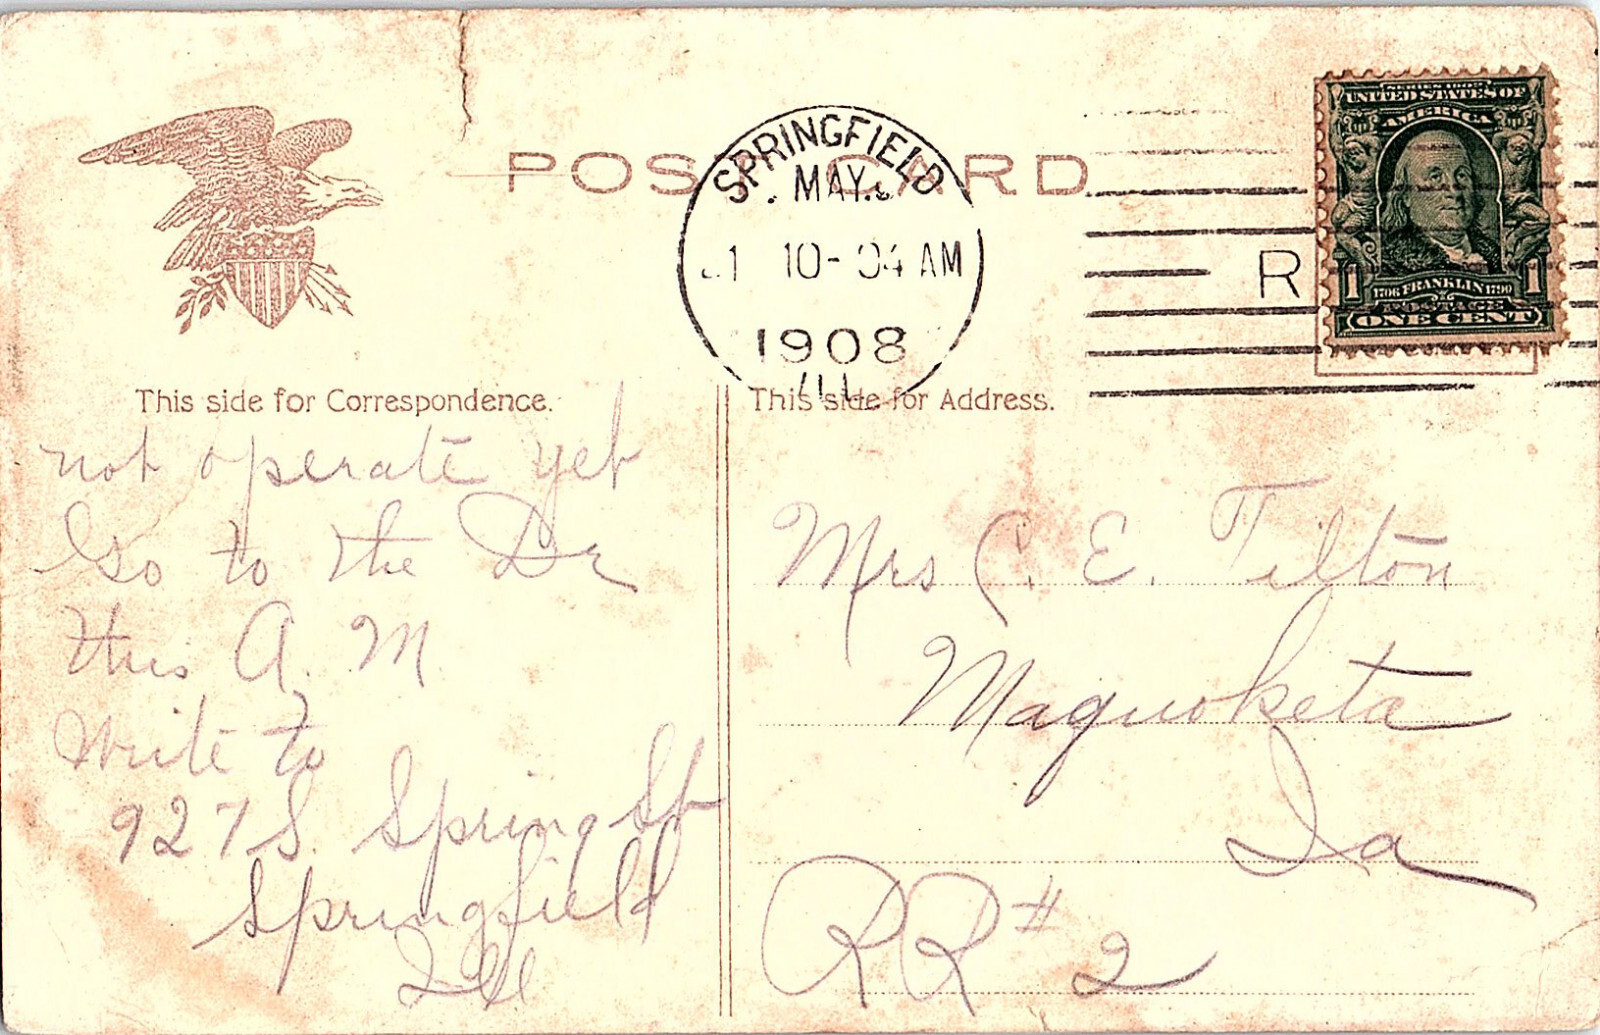 POST CARD
SPRINGFIELD
MAY.
1 10- AM
1908
ILL
R
UNITED STATES OF
AMERICA
1 1706 FRANKLIN 1790 1
POSTAGE
ONE CENT
This side for Correspondence.
not operate yet
Go to the Dr
this A. M.
Write to
927 S. Spring St
Springfield
Ill
This side for Address.
Mrs C. E. Tilton
Maquoketa
Ia
RR # 2